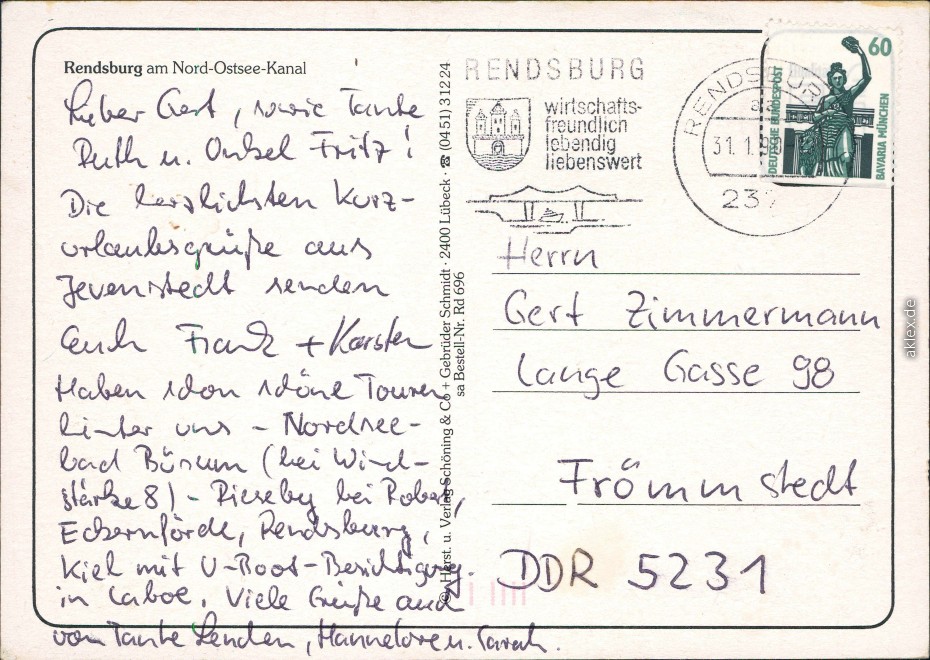 Rendsburg am Nord-Ostsee-Kanal
Lieber Gert, sowie Tante
Ruth u. Onkel Fritz!
Die herzlichsten Kurz-
urlaubsgrüße aus
Jevenstedt senden
Euch Frank + Karsten
Haben schon schöne Touren
hinter uns - Nordsee-
bad Büsum (bei Wind-
stärke 8) - Rieseby bei Robert,
Eckernförde, Rendsburg,
Kiel mit U-Boot-Besichtigung
in Laboe. Viele Grüße auch
von Tante Lenchen, Hannelore u. Sarah.
© Herst. u. Verlag Schöning & Co + Gebrüder Schmidt · 2400 Lübeck · ☎ (0451) 31224
sa Bestell-Nr. Rd 696
RENDSBURG
wirtschafts-
freundlich
lebendig
liebenswert
RENDSBURG
31.1.9
237
60
DEUTSCHE BUNDESPOST
BAVARIA MÜNCHEN
Herrn
Gert Zimmermann
Lange Gasse 98
Frömmstedt
DDR 5231
aklex.de